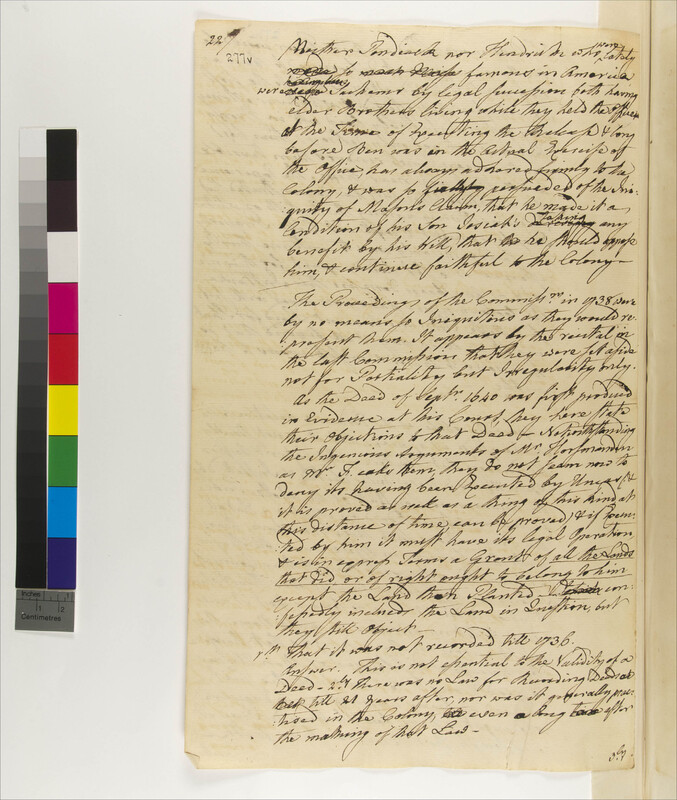 22
277v
Neither Tendieak nor Hendrick who were lately
so famous in America
were Sachems by legal succession both having
elder Brothers living while they held the office
At the Time of Executing the Release & long
before Ben was in the Actual Exercise of
the Office, has always adhered firmly to the
Colony, & was so perswaded of the Ini-
quity of Masons Claim, that he made it a
Condition of his Son Josiah's Taking any
benefit by his Will, that he should oppose
him, & continue faithful to the Colony—
The Proceedings of the Commissrs in 1738 were
by no means so Iniquitous as they would re
present them. It appears by the recital in
the last Commission that they were set aside
not for Partiality but Irregularity only.
As the Deed of Septr. 1640 was first produced
in Evidence at this Court, they here state
their Objections to that Deed— Notwithstanding
the Ingenious Arguments of Mr Horsmanden
as Mr I. calls them, they do not seem now to
deny its having been Executed by Uncas (&
it is proved as well as a thing of this kind at
this distance of time can be proved) & if Execu-
ted by him it must have its legal Operation,
& is in express Terms a Grant of all the Lands
that did or of right ought to belong to him
except the Land then Planted con-
sequently includes the Land in Question, but
they still Object—
That it was not recorded till 1736.
Answer. This is not essential to the Validity of a
Deed— 2dly there was no Law for Recording Deeds
till 21 Years after, nor was it generally prac
tised in the Colony, even a long after
the making of that Law—
3ly